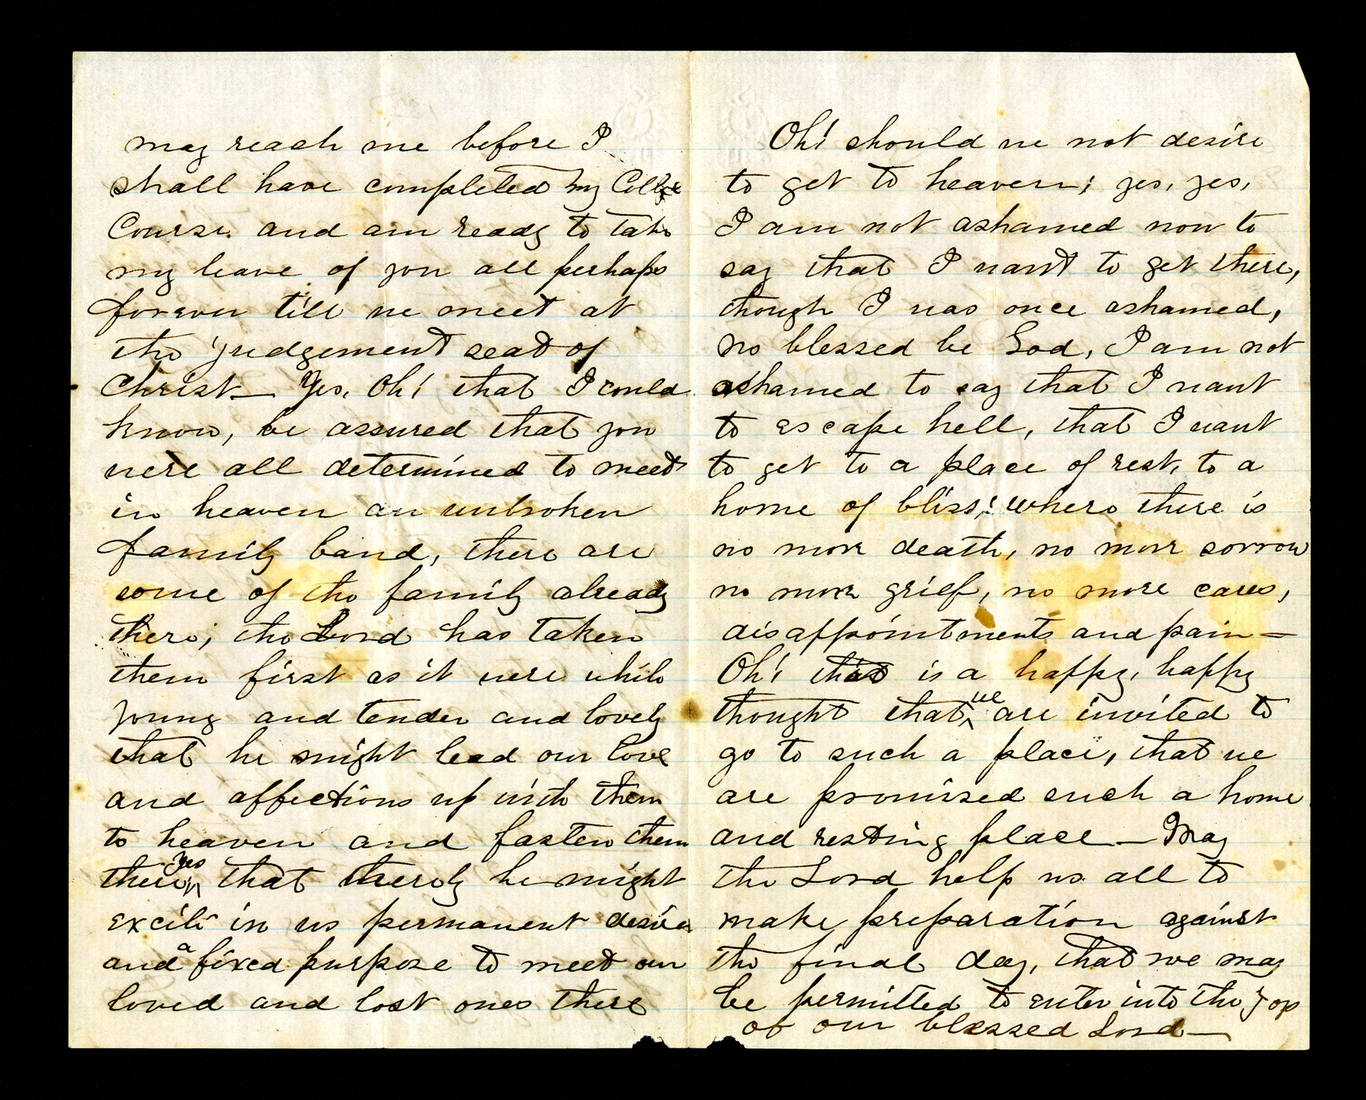 may reach me before I
shall have completed my College
Course. and am ready to take
my leave of you all perhaps
forever till we meet at
the judgement seat of
Christ— Yes, Oh! that I could
know, be assured that you
were all determined to meet
in heaven an unbroken
family band, there are
some of the family already
there; the Lord has taken
them first as it were while
young and tender and lovely
that he might lead our love
and affections up with them
to heaven and fasten them
there, Yes that thereby he might
excite in us permanent desires
and a fixed purpose to meet our
loved and lost ones there
Oh! should we not desire
to get to heaven; yes, yes,
I am not ashamed now to
say that I want to get there,
though I was once ashamed,
no blessed be God, I am not
ashamed to say that I want
to escape hell, that I want
to get to a place of rest, to a
home of bliss; where there is
no more death, no more sorrow
no more grief, no more cares,
disappointments and pain—
Oh! that is a happy, happy
thought that we are invited to
go to such a place, that we
are promised such a home
and resting place— May
the Lord help us all to
make preparation against
the final day, that we may
be permitted to enter into the joy
of our blessed Lord—